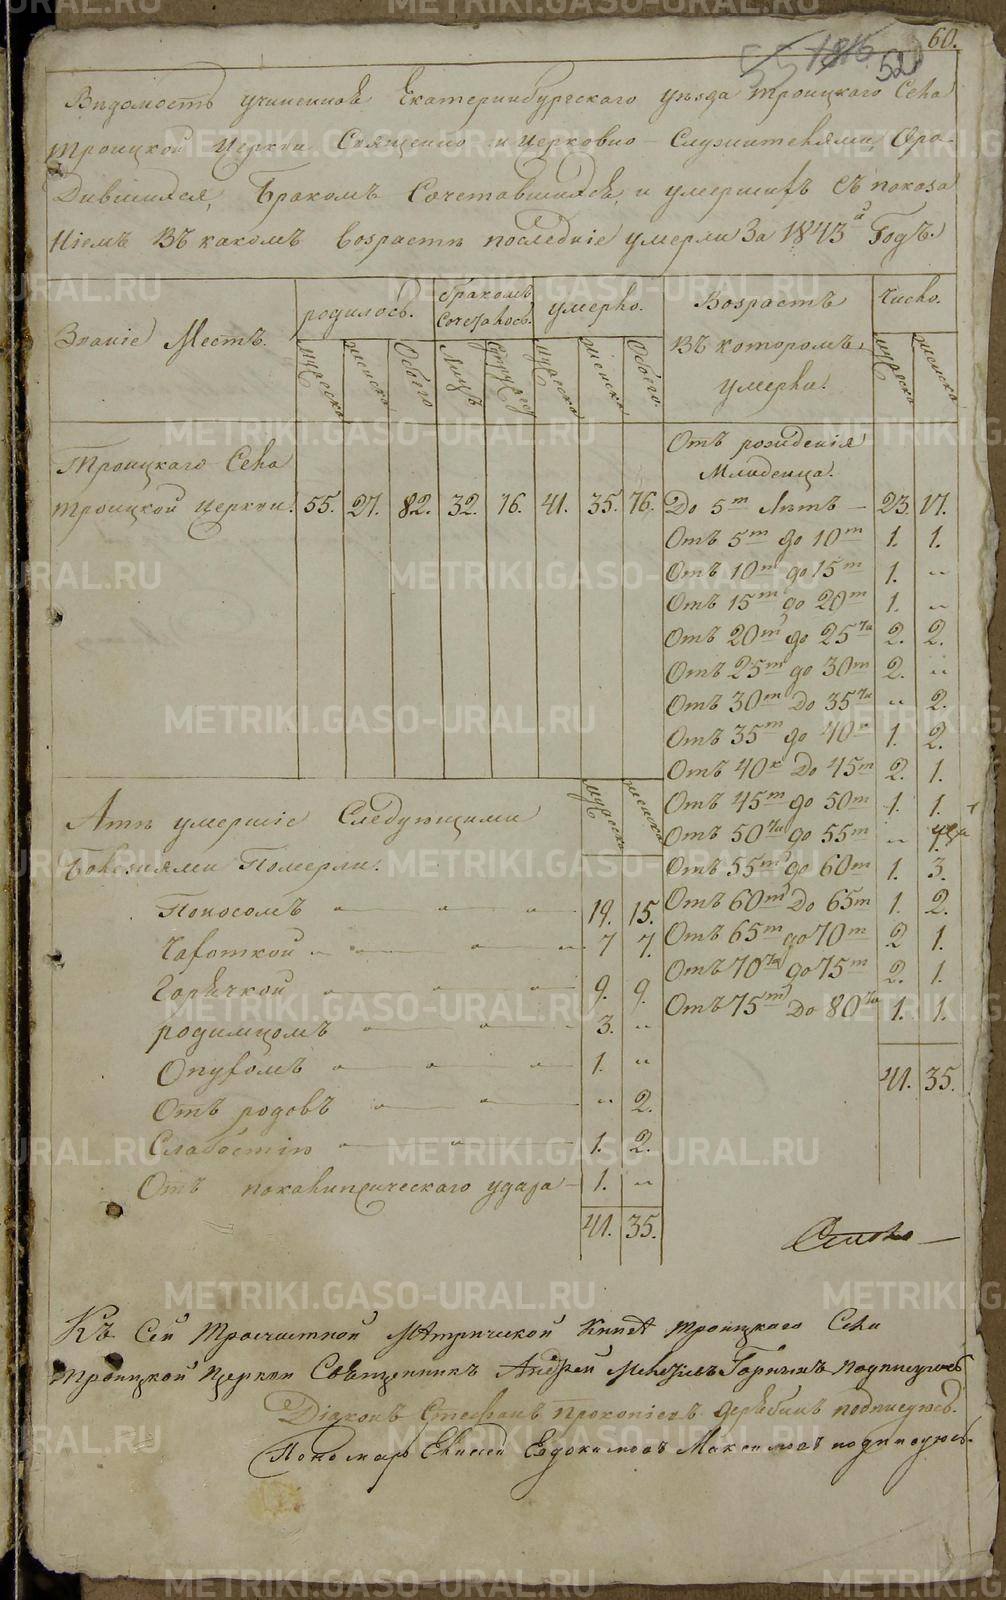 60.
55 1816 520
Вѣдомость учиненная Екатеринбургскаго уѣзда Троицкаго Села
Троицкой Церкви Священно и Церковно-Служителями, Оро-
дившихся, Бракомъ Сочетавшихся, и умершихъ Съ показа
ніемъ Въ какомъ Возрастѣ последніе умерли За 1843й Годъ.
Званіе Мѣстъ. родилось. бракомъ Сочеталось. умерло. Возрастъ Въ которомъ умерли. Число.
мужеска женска Обоего Лицъ Супруж мужеска женска Обоего. мужеска женска
Отъ рожденія
Младенца.
Троицкаго Села
Троицкой Церкви. 55. 27. 82. 32. 16. 41. 35. 76. До 5т Лѣтъ — 23. 17.
Отъ 5т до 10т 1. 1.
Отъ 10т до 15т 1. „
Отъ 15т до 20т 1. „
Отъ 20т до 25ти 2. 2.
Отъ 25т до 30т 2. „
Отъ 30т До 35ти „ 2.
Отъ 35т до 40к 1. 2.
Отъ 40к До 45т 2. 1.
Отъ 45т до 50т 1. 1.
Отъ 50ти до 55т „ 1.
Отъ 55т до 60т 1. 3.
Отъ 60т До 65т 1. 2.
Отъ 65т до 70т 2 1.
Отъ 70ти до 75т 2. 1.
Отъ 75т До 80ти 1. 1.
41. 35.
Атѣ умершіе Следующими мужеска женска
болезнями Померли.
Поносомъ 19. 15.
Чахоткой 7 7.
Горячкой 9. 9.
родимцомъ 3. „
Опухомъ 1. „
Отъ родовъ „ 2.
Слабостію 1. 2.
Отъ покалипсическаго удара 1. „
41. 35.
Къ Сей Троечастной Метрической Книге Троицкаго Села
Троицкой Церкви Священникъ Андрей Подписуюсь
Діаконъ Стефанъ Прокопіевъ Дерябинъ подписуюсь.
Пономарь Елисей Евдокимовъ Максимовъ подписуюсь.
METRIKI.GASO-URAL.RU